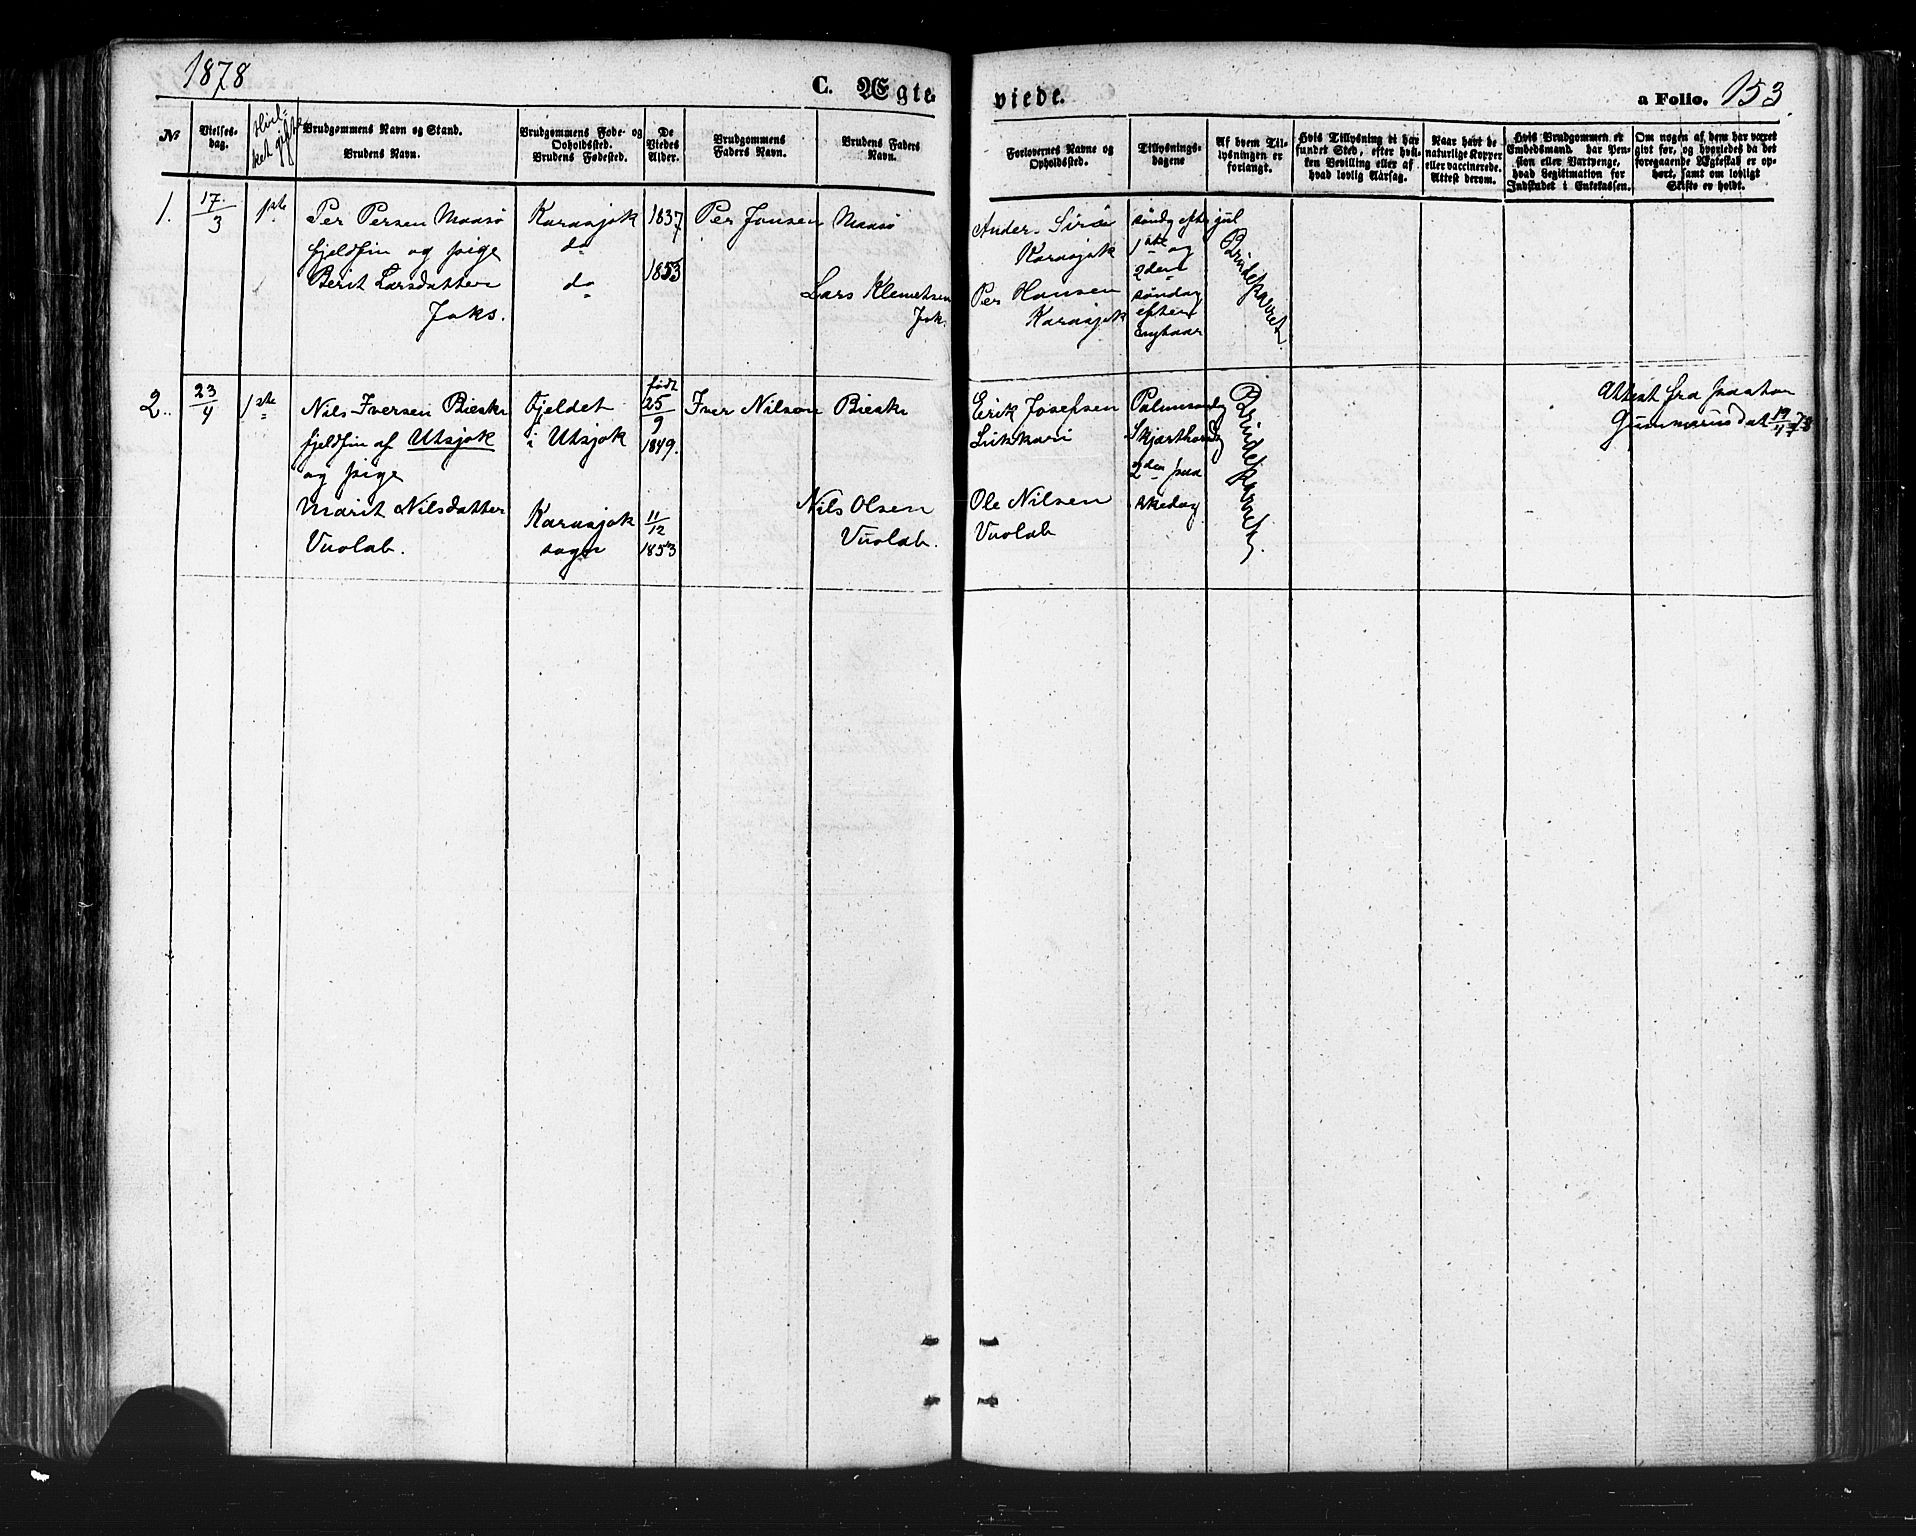 1878
C. Ægte
viede.
a Folio. 153.
No
Vielses-
dag.
Hvil-
ket gifte
Brudgommens Navn og Stand.
Brudens Navn.
Brudgommens Føde- og
Opholdssted.
Brudens Fødested.
De
Viedes
Alder.
Brudgommens
Faders Navn.
Brudens Faders
Navn.
Forlovernes Navne og
Opholdssted.
Tillysnings-
dagene
Af hvem Til-
lysningen er
forlangt.
Hvis Tillysning ei har
fundet Sted, efter hvil-
ken Bevilling eller af
hvad lovlig Aarsag.
Naar havt de
naturlige Kopper
eller vaccinerede.
Attest derom.
Hvis Brudgommen er
Embedsmand har Pen-
sion eller Vartpenge,
hvad Legitimation for
Indskudet i Enkekassen.
Om nogen af dem har været
gift før, og hvorledes da det
foregaaende Ægteskab er op-
hørt, samt om lovligt
Skifte er holdt.
1.
17
3
1ste
Per Persen Maasø
fjeldfin og pige
Berit Larsdatter
Joks.
Karasjok
do
do
1837
1853
Per Jonsen
Maasø
Lars Klemetsen
Jok.
Anders
Karasjok
Per Hansen
Karasjok
søndg eft jul
1ste og
2den
søndag
efter
nytaar
Brudeparret.
2.
23
4
1ste
Nils Iversen Bieski
fjeldfin af Utsjok
og pige
Marit Nilsdatter
Vuolab.
Fjeldet
i Utsjok
Karasjok
sogn
født
25
9
1849.
11
12
1853
Iver Nilsen
Bieski
Nils Olsen
Vuolab.
Erik Josefsen
Lukkari
Ole Nilsen
Vuolab
Palmesøndg
Skjærthorsdg
2den paa
skedag
Brudeparret.
Attest fra pastor
Gummerus dat 19/4 78